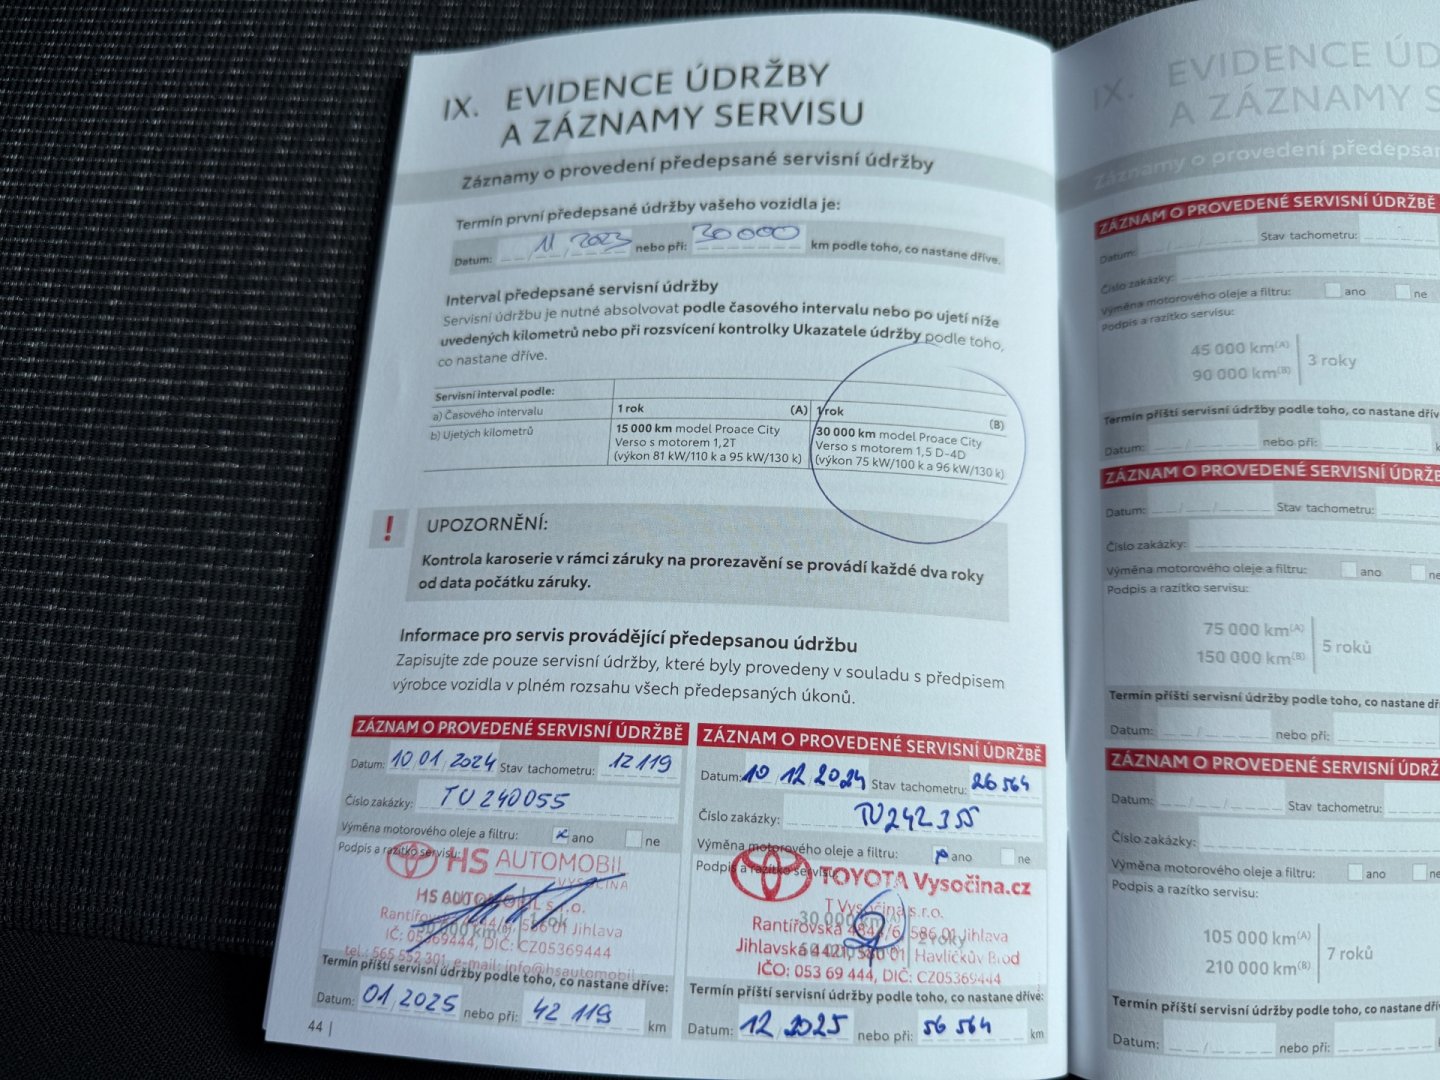 IX. EVIDENCE ÚDRŽBY
A ZÁZNAMY SERVISU
Záznamy o provedení předepsané servisní údržby
Termín první předepsané údržby vašeho vozidla je:
Datum: 11 / 2023 nebo při: 30000 km podle toho, co nastane dříve.
Interval předepsané servisní údržby
Servisní údržbu je nutné absolvovat podle časového intervalu nebo po ujetí níže
uvedených kilometrů nebo při rozsvícení kontrolky Ukazatele údržby podle toho,
co nastane dříve.
Servisní interval podle:
a) Časového intervalu 1 rok (A) 1 rok (B)
b) Ujetých kilometrů 15 000 km model Proace City 30 000 km model Proace City
Verso s motorem 1,2T Verso s motorem 1,5 D-4D
(výkon 81 kW/110 k a 95 kW/130 k) (výkon 75 kW/100 k a 96 kW/130 k)
! UPOZORNĚNÍ:
Kontrola karoserie v rámci záruky na prorezavění se provádí každé dva roky
od data počátku záruky.
Informace pro servis provádějící předepsanou údržbu
Zapisujte zde pouze servisní údržby, které byly provedeny v souladu s předpisem
výrobce vozidla v plném rozsahu všech předepsaných úkonů.
ZÁZNAM O PROVEDENÉ SERVISNÍ ÚDRŽBĚ
Datum: 10 01 2024 Stav tachometru: 12 119
Číslo zakázky: TU240055
Výměna motorového oleje a filtru: x ano ne
Podpis a razítko servisu:
HS AUTOMOBIL
VYSOČINA
HS AUTOMOBIL s.r.o.
Rantířovská 4844/6, 586 01 Jihlava
30 000 km 1 rok
IČ: 05369444, DIČ: CZ05369444
tel.: 565 552 301, e-mail: info@hsautomobil
Termín příští servisní údržby podle toho, co nastane dříve:
Datum: 01 2025 nebo při: 42 119 km
44 |
ZÁZNAM O PROVEDENÉ SERVISNÍ ÚDRŽBĚ
Datum: 10 12 2024 Stav tachometru: 26 564
Číslo zakázky: TU242355
Výměna motorového oleje a filtru: x ano ne
Podpis a razítko servisu:
TOYOTA Vysočina.cz
T Vysočina s.r.o.
30 000 km(A)
Rantířovská 4844/6, 586 01 Jihlava
2 roky
Jihlavská 4421, 580 01 Havlíčkův Brod
IČO: 053 69 444, DIČ: CZ05369444
Termín příští servisní údržby podle toho, co nastane dříve:
Datum: 12 2025 nebo při: 56 564 km
IX. EVIDENCE ÚD
A ZÁZNAMY S
Záznamy o provedení předepsa
ZÁZNAM O PROVEDENÉ SERVISNÍ ÚDRŽBĚ
Datum: Stav tachometru:
Číslo zakázky:
Výměna motorového oleje a filtru: ano ne
Podpis a razítko servisu:
45 000 km(A)
90 000 km(B) 3 roky
Termín příští servisní údržby podle toho, co nastane dřív
Datum: nebo při: k
ZÁZNAM O PROVEDENÉ SERVISNÍ ÚDRŽB
Datum: Stav tachometru:
Číslo zakázky:
Výměna motorového oleje a filtru: ano ne
Podpis a razítko servisu:
75 000 km(A)
150 000 km(B) 5 roků
Termín příští servisní údržby podle toho, co nastane dř
Datum: nebo při:
ZÁZNAM O PROVEDENÉ SERVISNÍ ÚDRŽ
Datum: Stav tachometru:
Číslo zakázky:
Výměna motorového oleje a filtru: ano ne
Podpis a razítko servisu:
105 000 km(A)
210 000 km(B) 7 roků
Termín příští servisní údržby podle toho, co nastane dř
Datum: nebo při: